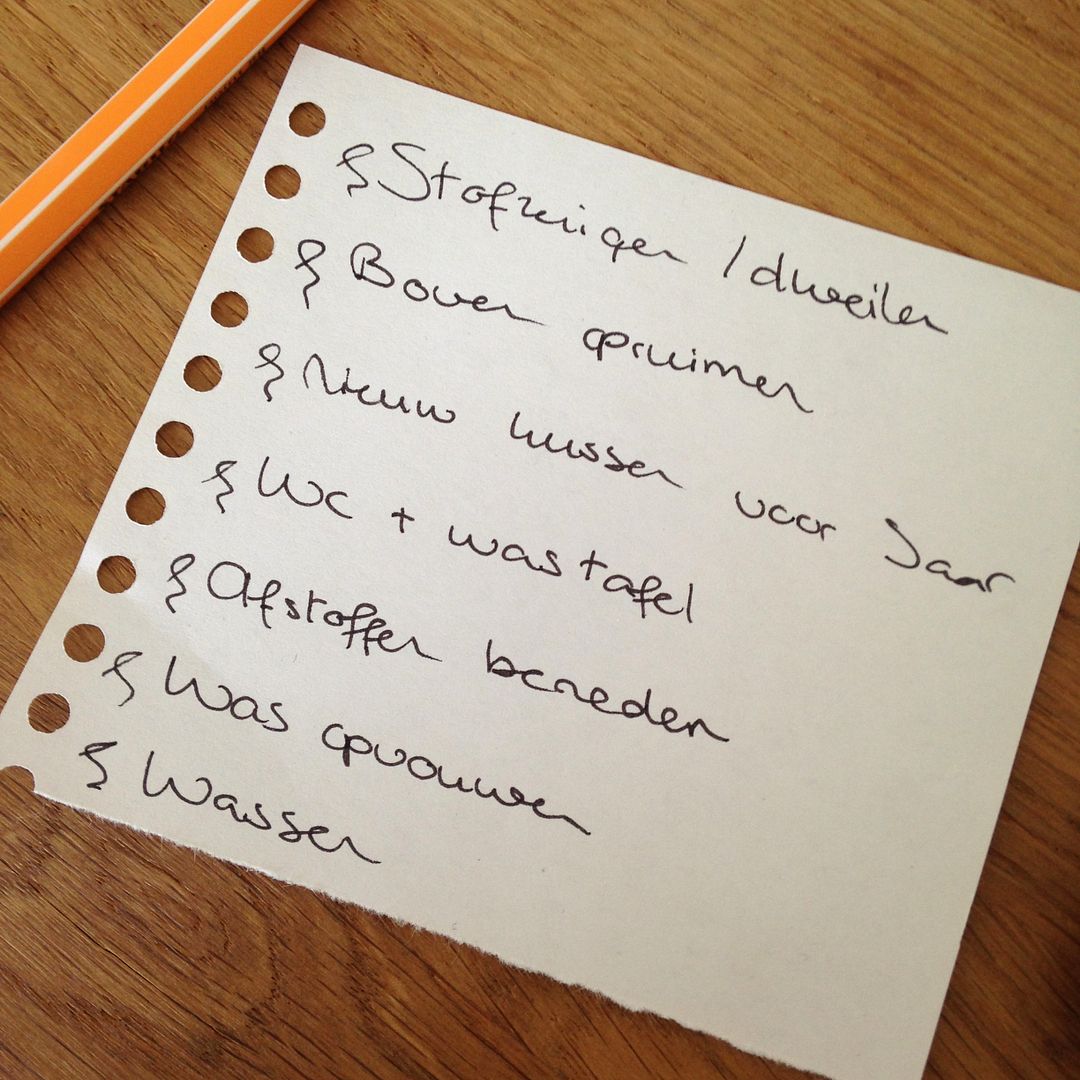 Stofzuigen / dweilen
Boven opruimen
Nieuw kussen voor Jaar
Wc + wastafel
Afstoffen beneden
Was opvouwen
Wassen